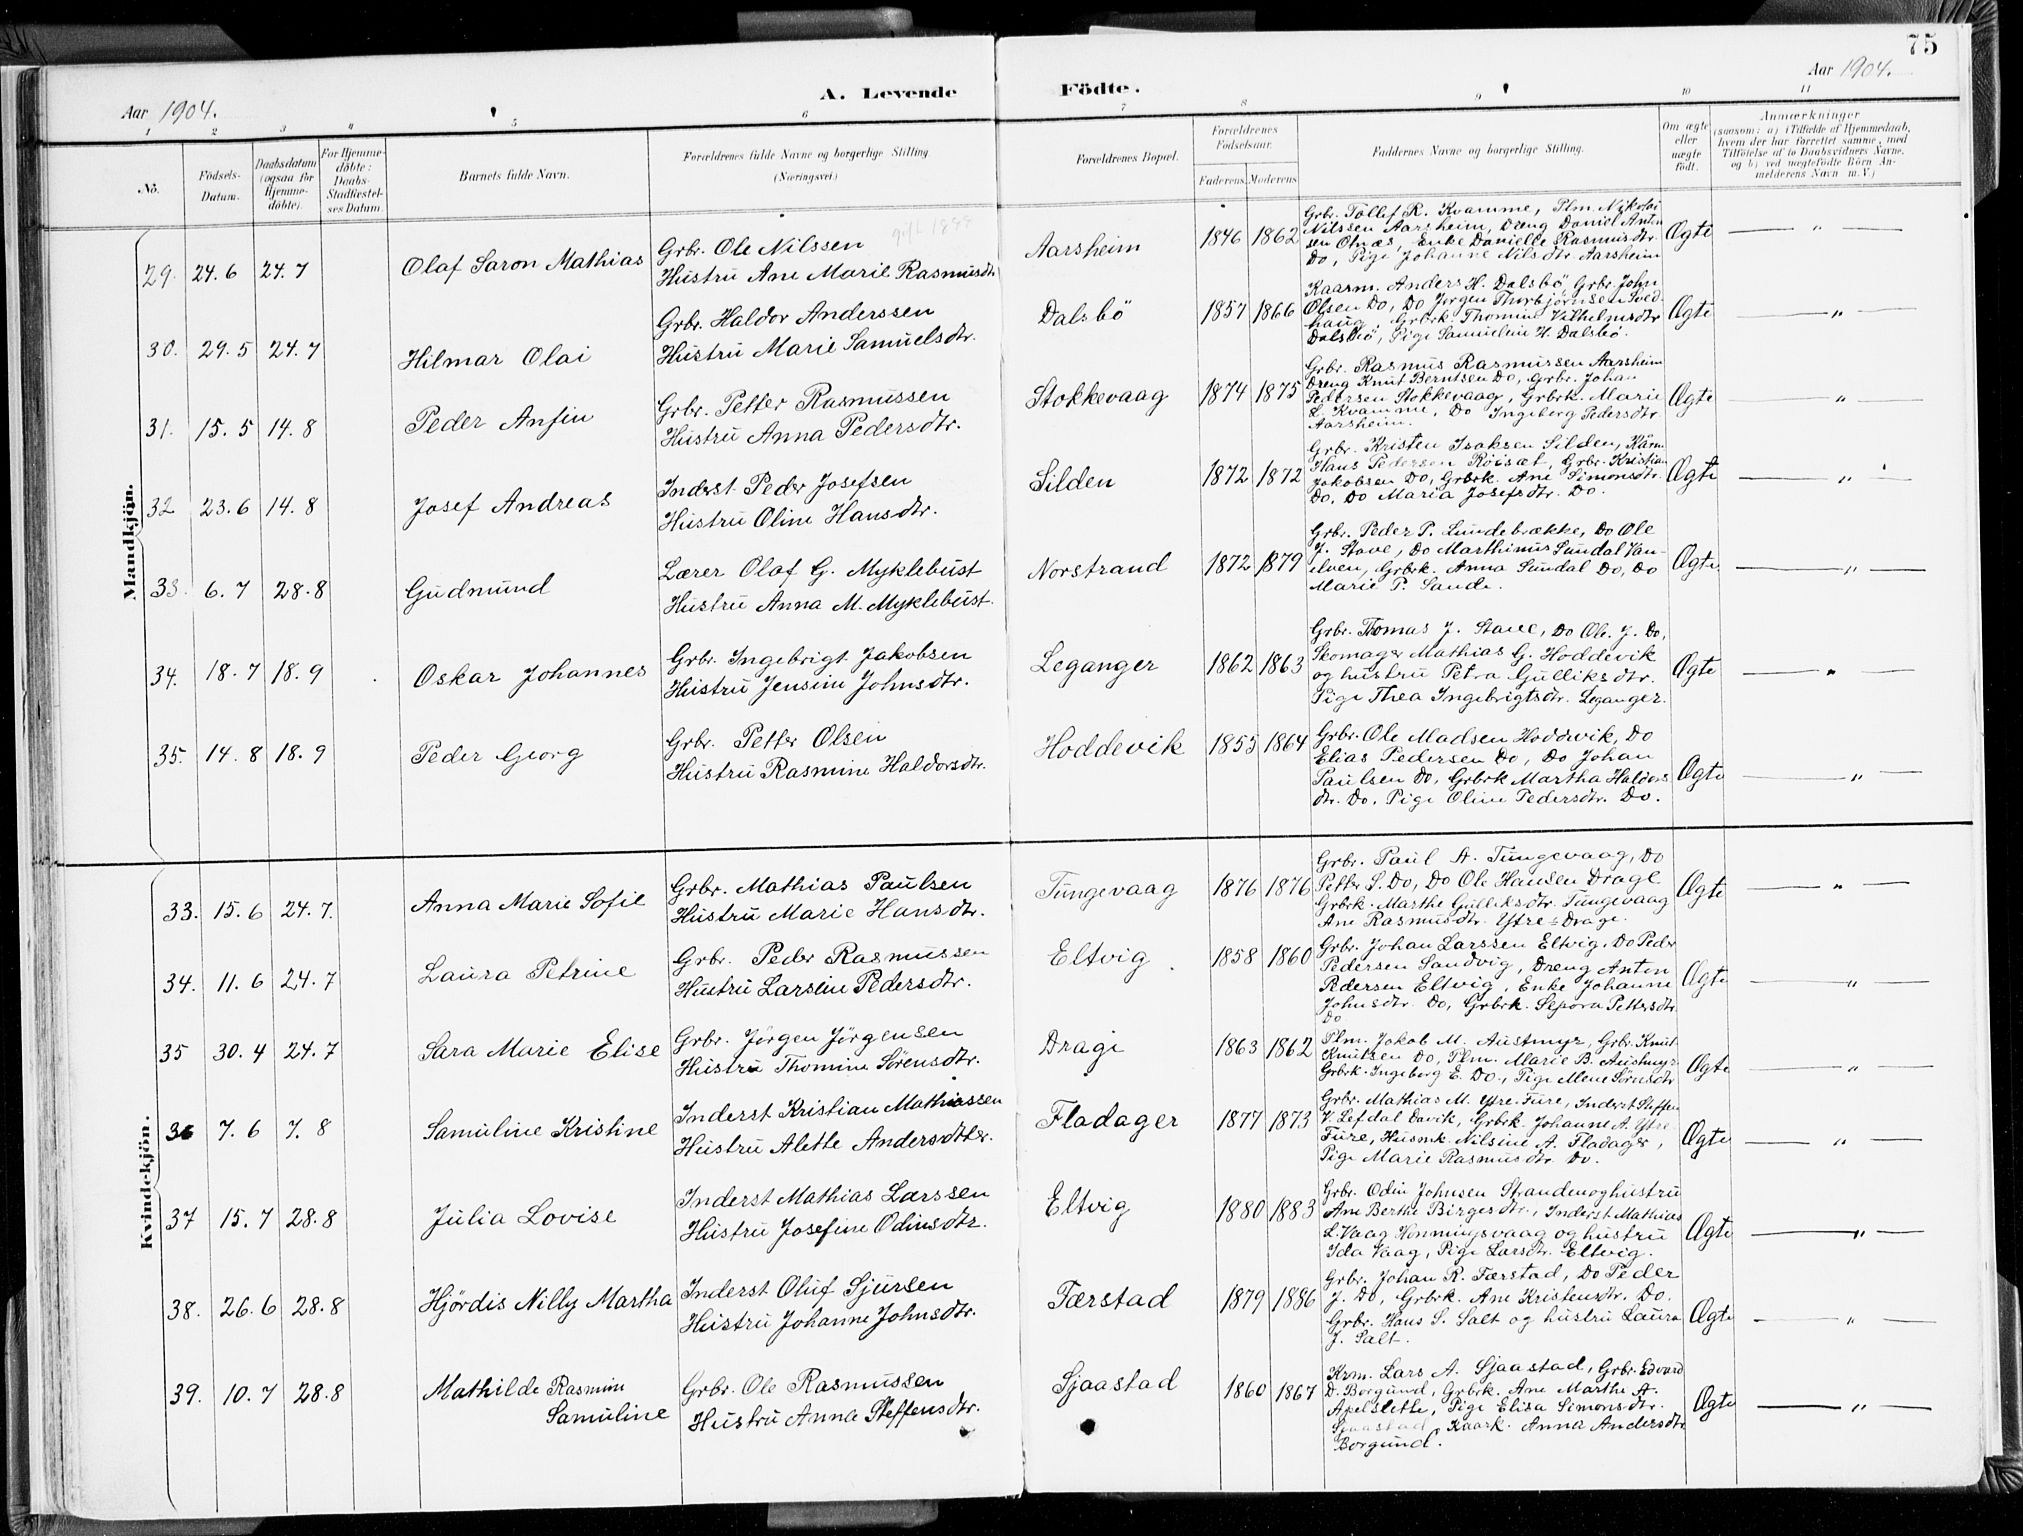 75
Aar 1904.
A. Levende Födte.
Aar 1904.
1 2 3 4 5 6 7 8 9 10 11
No.
Födsels-Datum.
Daabsdatum (ogsaa for Hjemmedöbte).
For Hjemmedöbte: Daabs-Stadfæstelses Datum.
Barnets fulde Navn.
Forældrenes fulde Navne og borgerlige Stilling. (Næringsvei.)
Forældrenes Bopæl.
Forældrenes Födselsaar.
Faderens. Moderens.
Faddernes Navne og borgerlige Stilling.
Om ægte eller uægte födt.
Anmærkninger
(saasom: a) i Tilfælde af Hjemmedaab, hvem der har forrettet samme, med Tilföielse af to Daabsvidners Navne, og b) ved uægtefödte Börn Anmelderens Navn m. V.)
Mandkjön.
gift 1888
29. 24.6 24.7 Olaf Saron Mathias
Grbr. Ole Nilssen
Hustru Ane Marie Rasmusdtr
Aarsheim 1846 1862
Grbr. Tollef R. Kvamme, Plm. Nikolai
Nilssen Aarsheim, Dreng Daniel Anton
sen Olnæs, Enke Danielle Rasmusdtr.
Do, Pige Johanne Nilsdtr. Aarsheim
Ægte — " —
30. 29.5 24.7 Hilmar Olai
Grbr. Haldor Anderssen
Hustru Marie Samuelsdtr.
Dalsbö 1857 1866
Kaarm. Anders H. Dalsbö, Grbr. John
Olsen Do, Do Jørgen Thorbjørnsen Sved
haug, Grbrk. Thomine Vilhelmsdtr
Dalsbö, Pige Samueline H. Dalsbö.
Ægte — " —
31. 15.5 14.8 Peder Anfin
Grbr. Petter Rasmussen
Hustru Anna Pedersdtr.
Stokkevaag 1874 1875
Grbr. Rasmus Rasmussen Aarsheim
Dreng Knut Berntsen Do, Grbr. Johan
Pedersen Stokkevaag, Grbrk. Marie
L. Kvamme, Do Ingeborg Pedersdtr
Aarsheim.
Ægte — " —
32 23.6 14.8 Josef Andreas
Inderst Peder Josefsen
Hustru Oline Hansdtr.
Silden 1872 1872
Grbr. Kristen Isaksen Silden, Kårm
Hans Pedersen Röisæt, Grbr. Kristian
Jakobsen Do, Grbrk. Ane Simonsdtr.
Do, Do Maria Josefsdtr. Do.
Ægte — " —
33. 6.7 28.8 Gudmund
Lærer Olaf G. Myklebust
Hustru Anna M. Myklebust.
Norstrand 1872 1879
Grbr. Peder P. Lundebrække, Do Ole
J. Stave, Do Marthinus Sundal Van-
elven, Grbrk. Anna Sundal Do, Do
Marie P. Sande.
Ægte — " —
34. 18.7 18.9 Oskar Johannes
Grbr. Ingebrigt Jakobsen
Hustru Jensine Johnsdtr.
Leganger 1862 1863
Grbr. Thomas J. Stave, Do Ole J. Do,
Skomager Mathias G. Hoddevik
og hustru Petra Gulliksdtr.
Pige Thea Ingebrigtsdtr. Leganger.
Ægte — " —
35. 14.8 18.9 Peder Georg
Grbr. Petter Olsen
Hustru Rasmine Haldorsdtr.
Hoddevik 1855 1864
Grbr. Ole Madsen Hoddevik, Do
Elias Pedersen Do, Do Johan
Paulsen Do, Grbrk Martha Haldors
dtr. Do. Pige Oline Pedersdtr. Do.
Ægte — " —
Kvindekjön.
33. 15.6 24.7. Anna Marie Sofie
Grbr. Mathias Paulsen
Hustru Marie Hansdtr.
Tungevaag 1876 1876
Grbr. Paul A. Tungevaag, Do
Petter S. Do, Do Ole Hansen Drage
Grbrk. Marthe Gulliksdtr. Tungevaag
Ane Rasmusdtr. Ytre-Drage.
Ægte — " —
34. 11.6 24.7 Laura Petrine
Grbr. Peder Rasmussen
Hustru Larsine Pedersdtr.
Eltvig 1858 1860
Grbr. Johan Larssen Eltvig, Do Peder
Pedersen Sandvig, Dreng Anton
Pedersen Eltvig, Enke Johanne
Johnsdtr. Do, Grbrk. Sepora Pettersdtr
Do
Ægte — " —
35 30.4 24.7 Sara Marie Elise
Grbr. Jørgen Jørgensen
Hustru Thomine Sørensdtr.
Drage 1863 1862
Plm. Jakob M. Austmyr, Grbr. Knut
Knutsen Do, Plm. Marie B. Austmyr
Grbrk. Ingeborg E. Do, Pige Alene Sørnsdtr
Ægte — " —
36 7.6 7.8 Samuline Kristine
Inderst Kristian Mathiassen
Hustru Alette Andersdtter.
Fladager 1877 1873
Grbr. Mathias M. Ytre-Fure, Inderst Steffen
V. Lefdal Davik, Grbrk. Johanne A. Ytre
Fure, Husmk. Nilsine A. Fladager,
Pige Marie Rasmusdtr. Do.
Ægte — " —
37 15.7 28.8 Julia Lovise
Inderst Mathias Larssen
Hustru Josefine Odinsdtr.
Eltvig 1880 1883
Grbr. Odin Johnsen Stranden og hustru
Ane Berthe Birgesdtr., Inderst Mathias
L. Vaag Honningsvaag og hustru
Ida Vaag, Pige Larsdtr. Eltvig.
Ægte — " —
38. 26.6 28.8 Hjördis Nilly Martha
Inderst Oluf Sjursen
Hustru Johanne Johnsdtr.
Færstad 1879 1886
Grbr. Johan R. Færstad, Do Peder
J. Do, Grbrk. Ane Kristensdtr. Do.
Grbr. Hans S. Salt og hustru Laura
J. Salt.
Ægte — " —
39. 10.7 28.8 Mathilde Rasmine
Samuline
Grbr. Ole Rasmussen
Hustru Anna Steffensdtr.
Sjaastad 1860 1867
Krm. Lars A. Sjaastad, Grbr. Edvard
D. Borgund, Grbrk. Ane Marthe A.
Apelsette, Pige Elisa Simonsdtr.
Sjaastad, Kaark. Anna Andersdtr
Borgund.
Ægte — " —